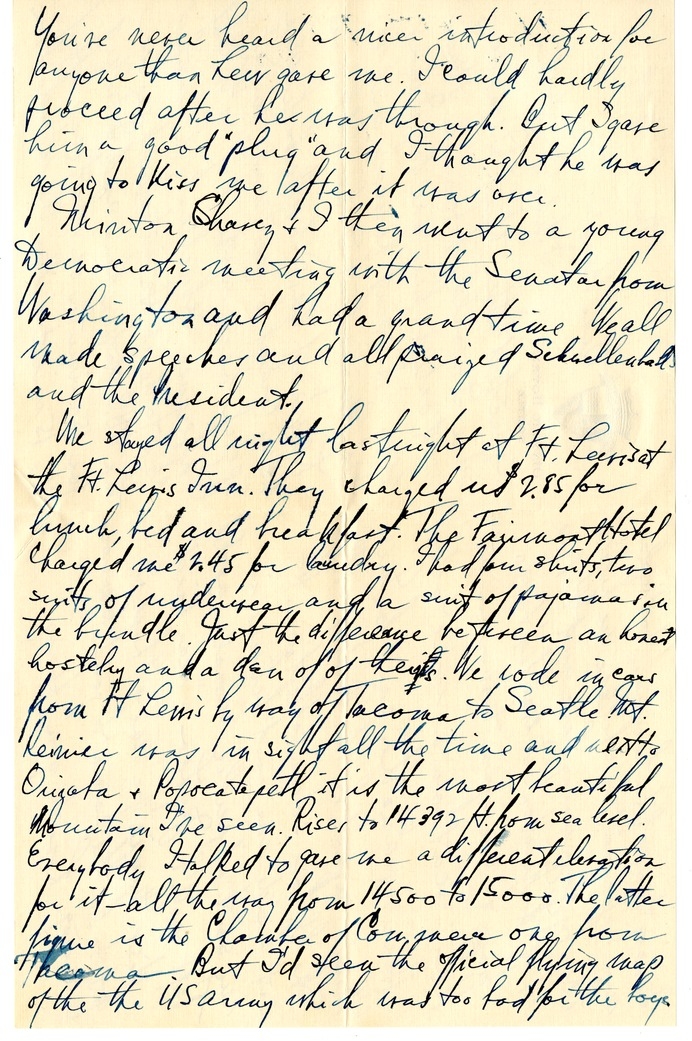 You've never heard a nicer introduction for
anyone than Lew gave me. I could hardly
proceed after he was through. But I gave
him a good "plug" and I thought he was
going to kiss me after it was over.
Minton Chavez & I then went to a young
Democratic meeting with the Senator from
Washington and had a grand time We all
made speeches and all praized Schwellenbach
and the President.
We stayed all night last night at Ft. Lewis at
the Ft. Lewis Inn. They charged us $2.85 for
lunch, bed and breakfast. The Fairmont Hotel
charged me $2.45 for laundry. I had four shirts, two
suits of underwear and a suit of pajamas in
the bundle. Just the difference between an honest
hostelry and a den of of theives. We rode in cars
from Ft Lewis by way of Tacoma to Seatle. Mt.
Reinier was in sight all the time and next to
Orizaba & Popocatepetl it is the most beautiful
mountain I've seen. Rises to 14392 ft. from sea level.
Everybody I talked to gave me a different elevation
for it - all the way from 14500 to 15000. The latter
figure is the Chamber of Commerce one from
Tacoma. But I'd seen the official flying map
of the the US Army which was too bad for the boys